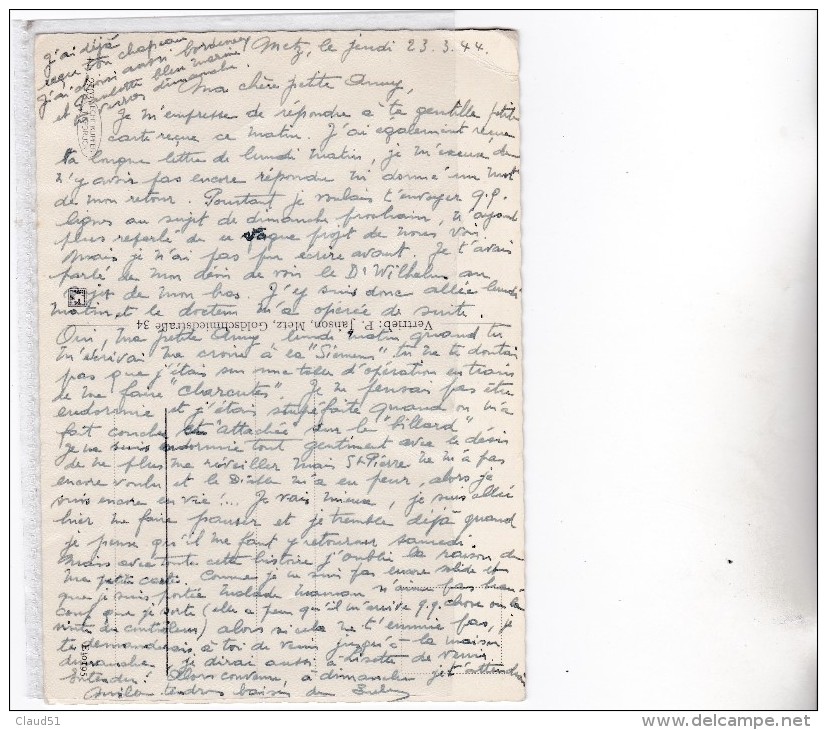 j'ai déjà
reçu ton chapeau
j'ai choisi aussi bordeaux
et culotte bleu marine
dimanche.
Metz, le jeudi 23.3.44.
Ma chère petite Amy,
Je m'empresse de répondre à ta gentille petite
carte reçue ce matin. J'ai également reçue
ta longue lettre de lundi matin, je m'excuse de
n'y avoir pas encore répondre ni donné un mot
de mon retour. Pourtant je voulais t'envoyer q.q.
lignes au sujet de dimanche prochain, n'ayant
plus reparlé de ce vague projet de nous voir.
Mais je n'ai pas pu écrire avant. Je t'avais
parlé de mon désir de voir le Dr Wilhelm au
sujet de mon bras. J'y suis donc allée lundi
matin et le docteur m'a opérée de suite.
Vertrieb: P. Janson, Metz, Goldschmiedstraße 34
Oui, ma petite Amy lundi matin quand tu
m'écrivais me croire à la "Siemens" tu ne te doutais
pas que j'étais sur une table d'opération en train
de me faire "charcuter". Je ne pensais pas être
endormie et j'étais stupéfaite quand on m'a
fait coucher et "attachée" sur le "billard"
Je me suis endormie tout gentiment avec le désir
de ne plus me réveiller mais St Pierre ne m'a pas
encore voulu et le Diable m'a eu peur, alors je
suis encore en vie!... Je vais mieux, je suis allée
hier me faire panser et je tremble déjà quand
je pense qu'il me faut y retourner samedi.
Mais avec toute cette histoire j'oublie la raison de
ma petite carte. Comme je ne suis pas encore solide et
que je suis portée malade maman n'aime pas beau-
coup que je sorte (elle a peur qu'il m'arrive q.q. chose ou la
visite du contrôleur) alors si cela ne t'ennuie pas, je
te demanderais à toi de venir jusqu'à la maison
dimanche. Je dirai aussi à de venir
entendu! Alors convenu, à dimanche je t'attendrai
tendres baisers de
Claud51